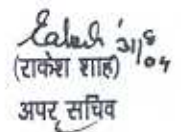 31/8
/04
(राकेश शाह)
अपर सचिव